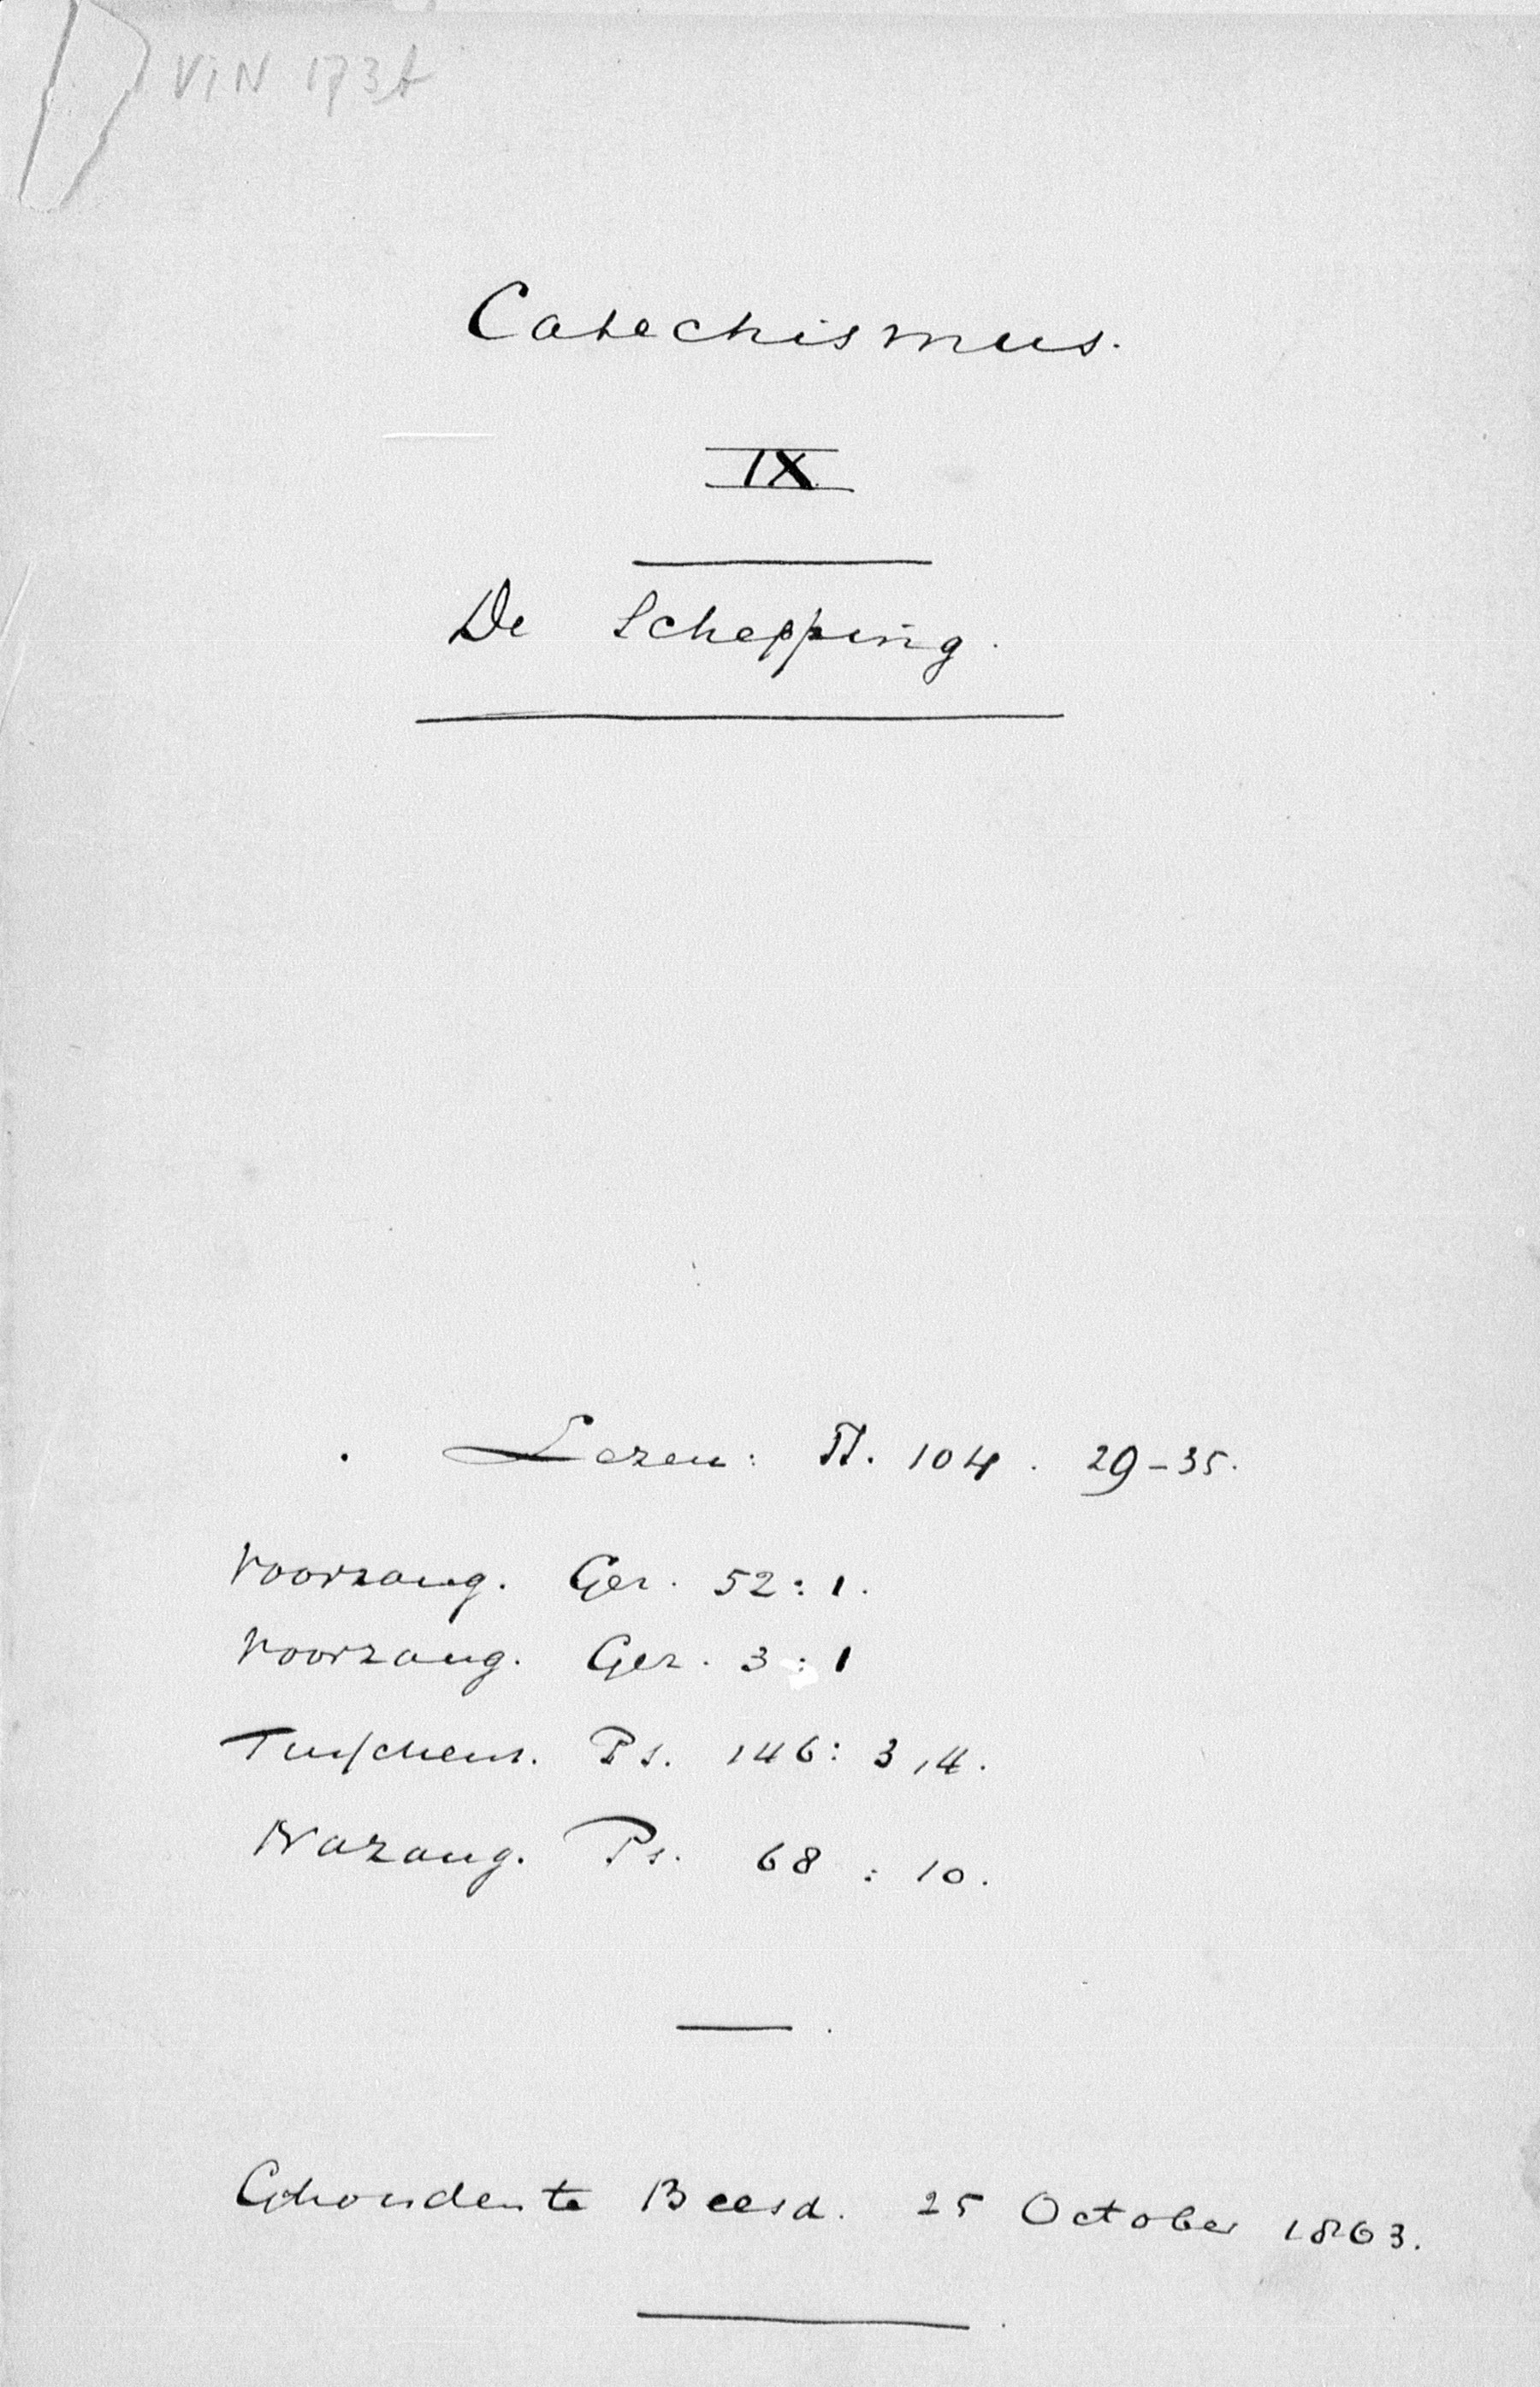 VIN 173A
Catechismus.
IX.
De Schepping.
Lezen: Ps. 104. 29-35.
Voorzang. Gez. 52:1.
Voorzang. Gez. 3:1
Tusschenz. Ps. 146: 3,4.
Nazang. Ps. 68:10.
Gehouden te Beesd. 25 October 1863.